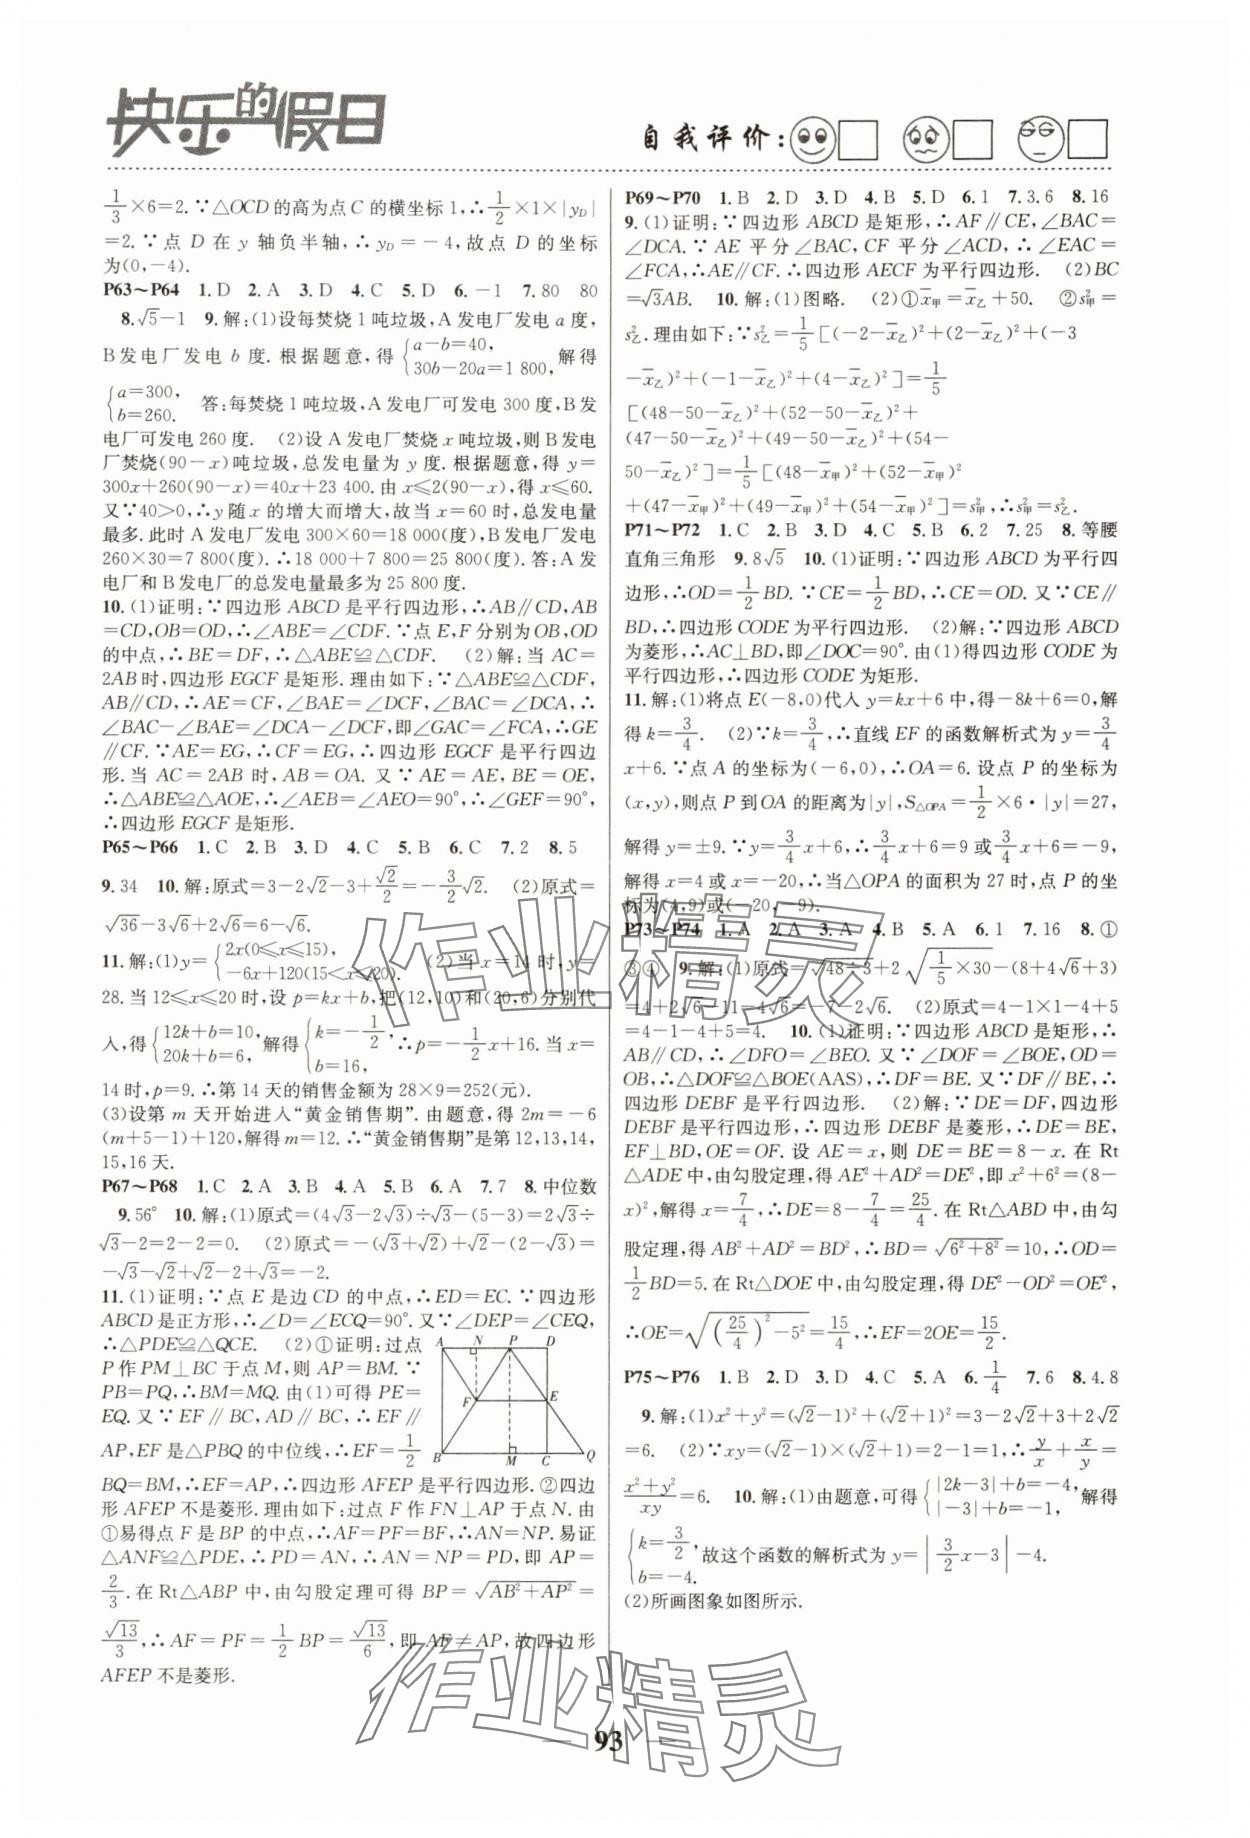 快乐的假日
自我评价:
1/3×6=2.∵△OCD的高为点C的横坐标1,∴1/2×1×|y_D|
=2.∵点 D 在 y 轴负半轴,∴y_D=-4,故点 D 的坐标
为(0,-4).
P63~P64 1.D 2.A 3.D 4.C 5.D 6.-1 7.80 80
8.√5-1 9.解:(1)设每焚烧1吨垃圾,A发电厂发电a度,
B发电厂发电 b 度.根据题意,得{a-b=40, 30b-20a=1 800,解得
{a=300, b=260. 答:每焚烧1吨垃圾,A发电厂可发电300度,B发
电厂可发电260度. (2)设A发电厂焚烧x吨垃圾,则B发电
厂焚烧(90-x)吨垃圾,总发电量为y度.根据题意,得y=
300x+260(90-x)=40x+23 400.由x≤2(90-x),得x≤60.
又∵40>0,∴y随x的增大而增大,故当x=60时,总发电量
最多.此时A发电厂发电300×60=18 000(度),B发电厂发电
260×30=7 800(度).∴18 000+7 800=25 800(度).答:A发
电厂和B发电厂的总发电量最多为25 800度.
10.(1)证明:∵四边形ABCD是平行四边形,∴AB∥CD,AB
=CD,OB=OD,∴∠ABE=∠CDF.∵点E,F分别为OB,OD
的中点,∴BE=DF,∴△ABE≌△CDF. (2)解:当AC=
2AB时,四边形EGCF是矩形.理由如下:∵△ABE≌△CDF,
AB∥CD,∴AE=CF,∠BAE=∠DCF,∠BAC=∠DCA,∴
∠BAC-∠BAE=∠DCA-∠DCF,即∠GAC=∠FCA,∴GE
∥CF.∵AE=EG,∴CF=EG,∴四边形EGCF是平行四边
形.当 AC=2AB 时,AB=OA.又∵AE=AE,BE=OE,
∴△ABE≌△AOE,∴∠AEB=∠AEO=90°,∴∠GEF=90°,
∴四边形EGCF是矩形.
P65~P66 1.C 2.B 3.D 4.C 5.B 6.C 7.2 8.5
9.34 10.解:原式=3-2√2-3+√2/2=-3/2√2. (2)原式=
√36-3√6+2√6=6-√6.
11.解:(1)y={2x(0≤x≤15), -6x+120(15<x≤20). (2)当x=14时,y=
28.当12≤x≤20时,设p=kx+b,把(12,10)和(20,6)分别代
入,得{12k+b=10, 20k+b=6,解得{k=-1/2, b=16,∴p=-1/2x+16.当x=
14时,p=9.∴第14天的销售金额为28×9=252(元).
(3)设第m天开始进入“黄金销售期”.由题意,得2m=-6
(m+5-1)+120,解得m=12.∴“黄金销售期”是第12,13,14,
15,16天.
P67~P68 1.C 2.A 3.B 4.A 5.B 6.A 7.7 8.中位数
9.56° 10.解:(1)原式=(4√3-2√3)÷√3-(5-3)=2√3÷
√3-2=2-2=0. (2)原式=-(√3+√2)+√2-(2-√3)=
-√3-√2+√2-2+√3=-2.
11.(1)证明:∵点E是边CD的中点,∴ED=EC.∵四边形
ABCD是正方形,∴∠D=∠ECQ=90°.又∵∠DEP=∠CEQ,
∴△PDE≌△QCE. (2)①证明:过点
P作PM⊥BC于点M,则AP=BM.∵
PB=PQ,∴BM=MQ.由(1)可得PE=
EQ.又∵EF∥BC,AD∥BC,∴EF∥
AP,EF是△PBQ的中位线,∴EF=1/2
BQ=BM,∴EF=AP,∴四边形AFEP是平行四边形.②四边
形AFEP不是菱形.理由如下:过点F作FN⊥AP于点N.由
①易得点F是BP的中点,∴AF=PF=BF,∴AN=NP.易证
△ANF≌△PDE,∴PD=AN,∴AN=NP=PD,即AP=
2/3.在Rt△ABP中,由勾股定理可得BP=√(AB²+AP²)=
√13/3,∴AF=PF=1/2BP=√13/6,即AF≠AP,故四边形
AFEP不是菱形.
A N P D
F E
B M C Q
P69~P70 1.B 2.D 3.D 4.B 5.D 6.1 7.3.6 8.16
9.(1)证明:∵四边形ABCD是矩形,∴AF∥CE,∠BAC=
∠DCA.∵AE平分∠BAC,CF平分∠ACD,∴∠EAC=
∠FCA,∴AE∥CF.∴四边形AECF为平行四边形. (2)BC
=√3AB. 10.解:(1)图略. (2)①x̄甲=x̄乙+50. ②s²甲=
s²乙.理由如下:∵s²乙=1/5[(-2-x̄乙)²+(2-x̄乙)²+(-3
-x̄乙)²+(-1-x̄乙)²+(4-x̄乙)²]=1/5
[(48-50-x̄乙)²+(52-50-x̄乙)²+
(47-50-x̄乙)²+(49-50-x̄乙)²+(54-
50-x̄乙)²]=1/5[(48-x̄甲)²+(52-x̄甲)²
+(47-x̄甲)²+(49-x̄甲)²+(54-x̄甲)²]=s²甲,∴s²甲=s²乙.
P71~P72 1.C 2.B 3.D 4.C 5.B 6.2 7.25 8.等腰
直角三角形 9.8√5 10.(1)证明:∵四边形ABCD为平行四
边形,∴OD=1/2BD.∵CE=1/2BD,∴CE=OD.又∵CE∥
BD,∴四边形CODE为平行四边形. (2)解:∵四边形ABCD
为菱形,∴AC⊥BD,即∠DOC=90°.由(1)得四边形CODE为
平行四边形,∴四边形CODE为矩形.
11.解:(1)将点E(-8,0)代入y=kx+6中,得-8k+6=0,解
得k=3/4. (2)∵k=3/4,∴直线EF的函数解析式为y=3/4
x+6.∵点A的坐标为(-6,0),∴OA=6.设点P的坐标为
(x,y),则点P到OA的距离为|y|,S△OPA=1/2×6·|y|=27,
解得y=±9.∵y=3/4x+6,∴3/4x+6=9或3/4x+6=-9,
解得x=4或x=-20,∴当△OPA的面积为27时,点P的坐
标为(4,9)或(-20,-9).
P73~P74 1.A 2.A 3.A 4.B 5.A 6.1 7.16 8.①
③④ 9.解:(1)原式=√(48÷3)+2√(1/5×30)-(8+4√6+3)
=4+2√6-11-4√6=-7-2√6. (2)原式=4-1×1-4+5
=4-1-4+5=4. 10.(1)证明:∵四边形ABCD是矩形,∴
AB∥CD,∴∠DFO=∠BEO.又∵∠DOF=∠BOE,OD=
OB,∴△DOF≌△BOE(AAS),∴DF=BE.又∵DF∥BE,∴
四边形DEBF是平行四边形. (2)解:∵DE=DF,四边形
DEBF是平行四边形,∴四边形DEBF是菱形,∴DE=BE,
EF⊥BD,OE=OF.设AE=x,则DE=BE=8-x.在Rt
△ADE中,由勾股定理,得AE²+AD²=DE²,即x²+6²=(8-
x)²,解得x=7/4,∴DE=8-7/4=25/4.在Rt△ABD中,由勾
股定理,得AB²+AD²=BD²,∴BD=√(6²+8²)=10,∴OD=
1/2BD=5.在Rt△DOE中,由勾股定理,得DE²-OD²=OE²,
∴OE=√((25/4)²-5²)=15/4,∴EF=2OE=15/2.
P75~P76 1.B 2.D 3.D 4.C 5.A 6.1/4 7.6 8.4.8
9.解:(1)x²+y²=(√2-1)²+(√2+1)²=3-2√2+3+2√2
=6. (2)∵xy=(√2-1)×(√2+1)=2-1=1,∴y/x+x/y=
(x²+y²)/xy=6. 10.解:(1)由题意,可得{|2k-3|+b=-4, |-3|+b=-1,解得
{k=3/2, b=-4.故这个函数的解析式为y=|3/2x-3|-4.
(2)所画图象如图所示.
作业精灵
作业精灵
93